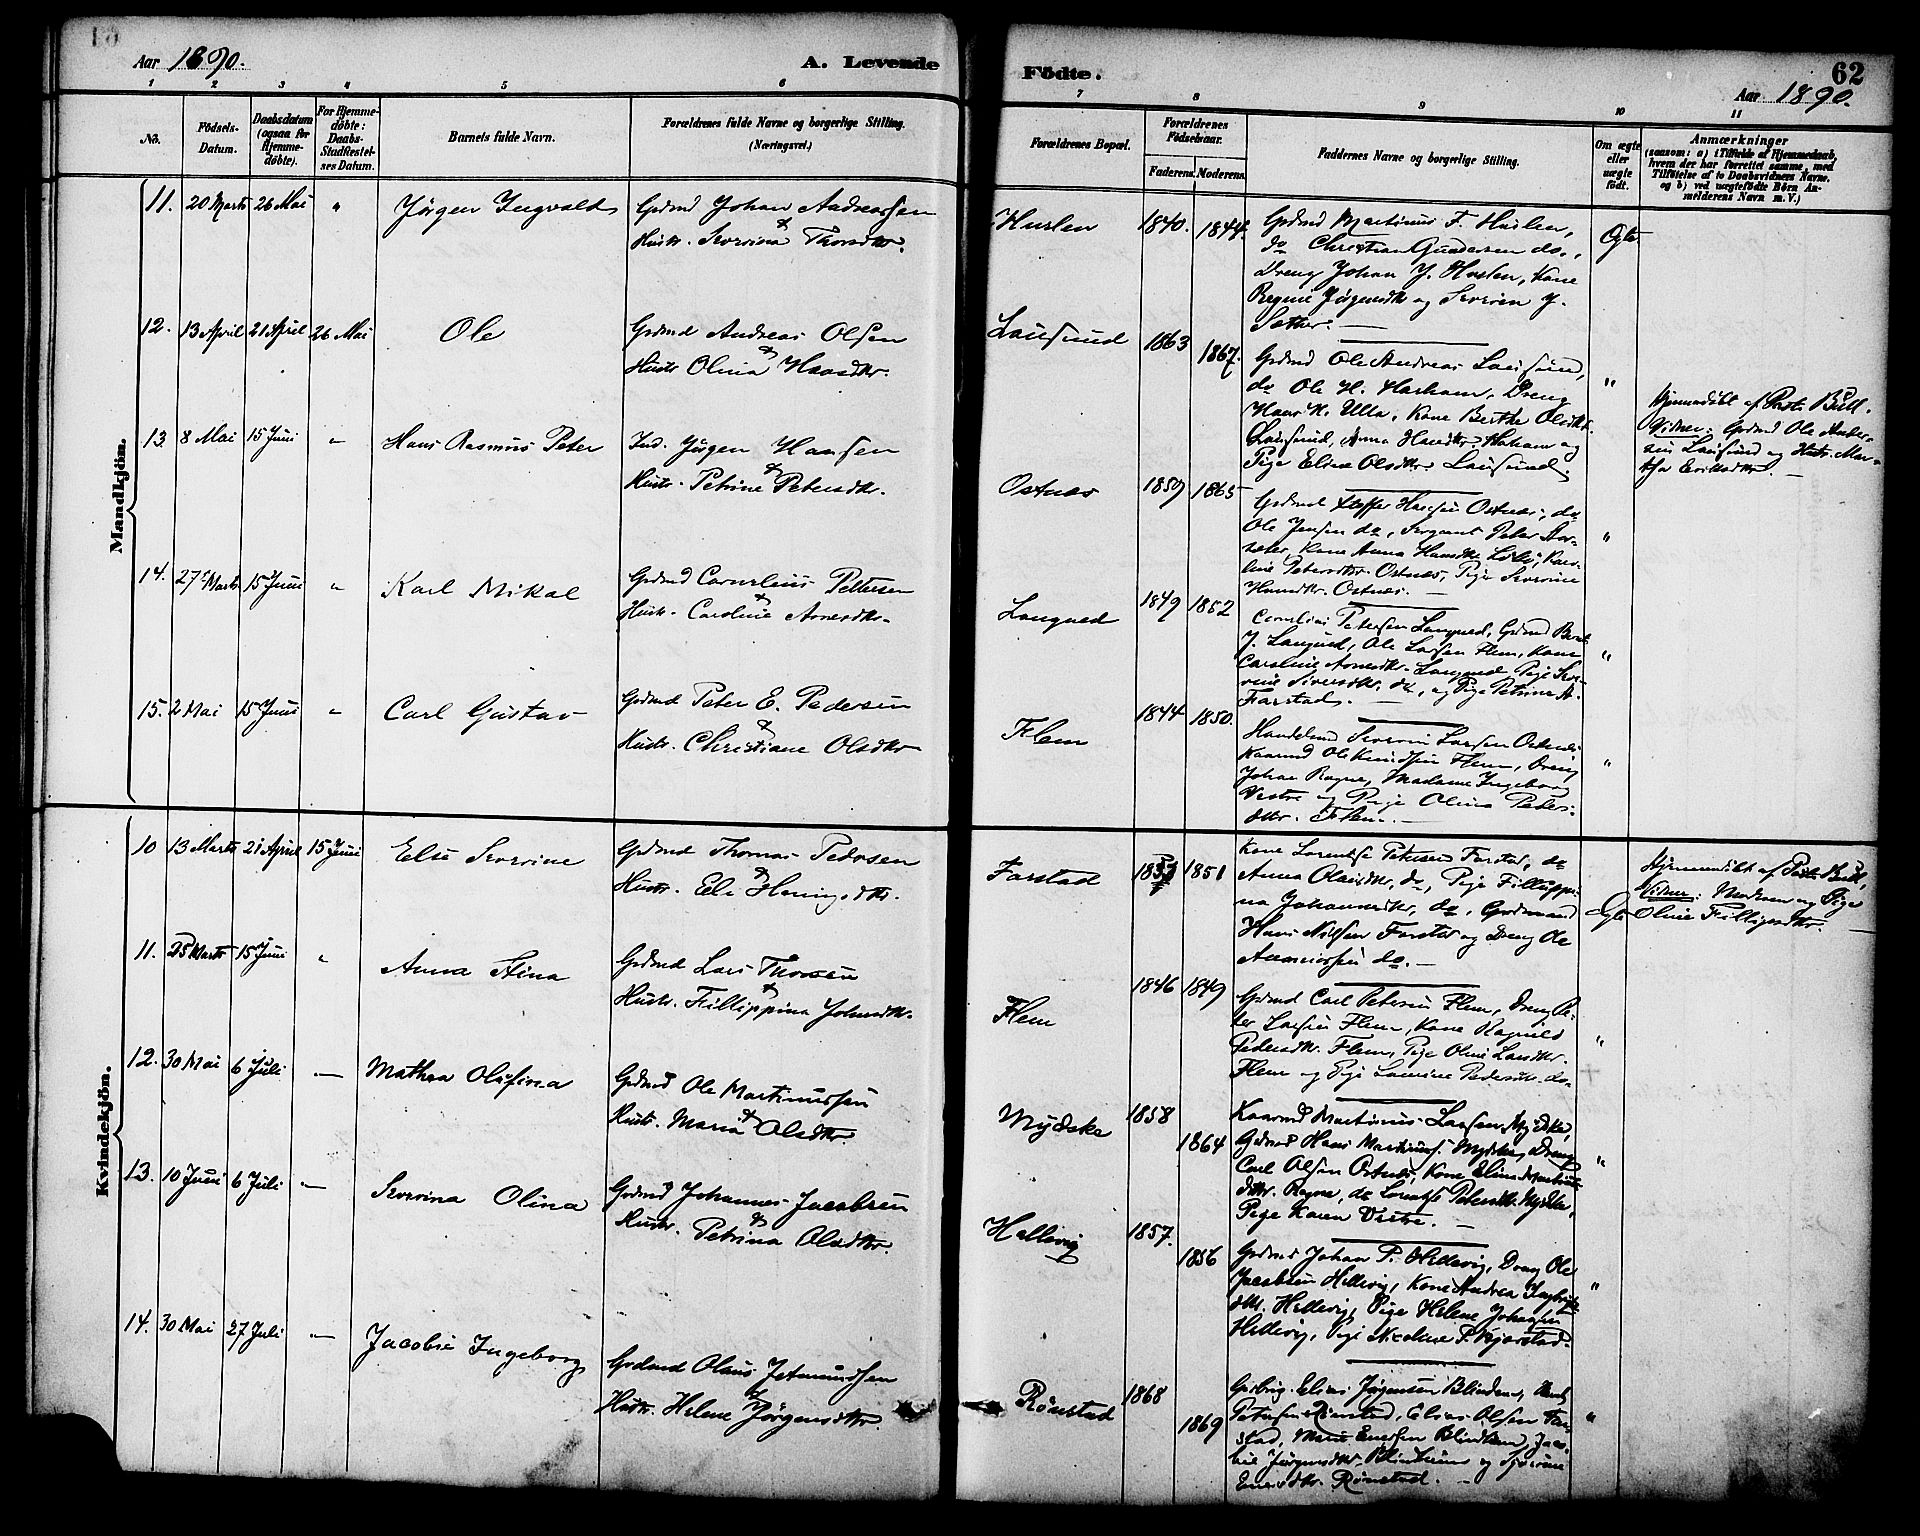 Aar 1890.
A. Levende
Födte.
62
Aar 1890.
1 2 3 4 5 6
7 8 9 10 11
No.
Födsels-
Datum.
Daabsdatum
(ogsaa for
Hjemme-
döbte).
For Hjemme-
döbte:
Daabs-
Stadfæstel-
ses Datum.
Barnets fulde Navn.
Forældrenes fulde Navne og borgerlige Stilling.
(Næringsvei.)
Forældrenes Bopæl.
Forældrenes
Födselsaar.
Faderens. Moderens.
Faddernes Navne og borgerlige Stilling.
Om ægte
eller
uægte
födt.
Anmærkninger
(saasom: a) i Tilfælde af Hjemmedaab,
hvem der har forrettet samme, med
Tilföielse af to Daabsvidners Navne,
og b) ved uægtefödte Börn An-
melderens Navn m. V.)
Mandkjön.
11. 20 Marts 26 Mai " Jörgen Ingvald
Grdmd Johan Andreassen
&
Hustr. Severina Thorsdtr.
Huslen 1840. 1844.
Grdmd Martinus F. Huslen,
do Christian Gundersen do.,
Dreng Johan J. Huslen, Kone
Regine Jörgensdtr og Severin J.
Sæther. —
Ægte
12. 13 April 21 April 26 Mai Ole
Grdmd Andreas Olsen
&
Hustr Olina Hansdtr.
Lausund 1863 1867.
Grdmd Ole Andreas Lausund,
do Ole H. Harham, Dreng
Hans K. Ulla, Kone Berthe Olsdtr.
Lausund, Anna Hansdtr. Harham og
Pige Eline Olsdtr Lausund.
"
Hjemmedöbt af Præst Bull.
Vidner: Grdmd Ole Andersen
Lausund og Hustr. Mar-
tha Eriksdtr. —
13. 8 Mai 15 Juni " Hans Rasmus Peter
Ind. Jörgen Hansen
&
Hustr. Petrine Petersdtr.
Ostnæs 1859 1865
Ole Jensen do, Sergeant Peter Stor-
sæter, Kone Anna Hansdtr
line Petersdtr. Ostnæs, Pige Severine
Hansdtr. Ostnæs. —
"
14. 27 Marts 15 Juni " Karl Mikal
Grdmd Cornelius Pettersen
&
Hustr. Caroline Arnesdtr.
Longved 1849 1852
Cornelius Petersen Longved, Grdmd Bernt
J. Longved, Ole Larsen Flem, Kone
Caroline Arnesdtr. Longved, Pige Seve-
rine Siversdtr. do, og Pige Petrine A.
Farstad. —
"
15. 2 Mai 15 Juni " Carl Gustav
Grdmd Peter E. Pedersen
&
Hustr. Christiane Olsdtr
Flem 1844 1850.
Handelsmd Severin Larsen Ostnæs
Kaarmd Ole Knudsen Flem, Dreng
Johan Rogne, Madame Ingeborg
Vestre og Pige Olina Peders-
dtr. Flem. —
"
Kvindekjön.
10 13 Marts 21 April 15 Juni Else Severine
Grdmd Thomas Pedersen
&
Hustr. Ele Heningsdtr.
Farstad 1853 1851
Kone Lorentse Petersen Farstad, do
Anna Olausdtr, do, Pige Fillippi-
na Johannesdtr, do, Grdmand
Hans Nilsen Farstad og Dreng Ole
do. —
Ægte
Hjemmedöbt af Præst Bull,
Vidner: Moderen og Pige
Oline Fillipsdtr. —
11. 25 Marts 15 Juni " Anna Stina
Grdmd Lars Thorsen
&
Hustr. Fillippina Johnsdtr.
Flem 1846 1849
Grdmd Carl Petersen Flem, Dreng Pe-
ter Larsen Flem, Kone Ragnild
Pedersdtr. Flem, Pige Oline Larsdtr.
Flem og Pige Laurine Pedersdtr. do
"
12. 30 Mai 6 Juli — Mathea Olufina
Grdmd Ole Martinussen
&
Hustr. Maria Olsdtr.
Myðske 1858 1864
Kaarmd Martinus Larsen Mydske,
Grdmd Hans Martinus. Mydske, Dreng
Carl Olsen Ostnæs, Kone Elina Martinus-
dtr. Rogne, do Lorentse Petersdtr. Mydske,
Pige Karen Vestre. —
"
13. 10 Juni 6 Juli — Severina Olina
Grdmd Johannes Jacobsen
&
Hustr. Petrina Olsdtr.
Hellevig 1857. 1856
Grdmd Johan P. Hellevig, Dreng Ole
Jacobsen Hellevig, Kone Andrea Ingbrigts-
dtr. Hellevig, Pige Helene Johansen
Hellevig, Pige Nicoline P. Kjerstad.
"
14. 30 Mai 27 Juli — Jacobie Ingeborg
Grdmd Olaus Jetmundsen
&
Hustr. Helene Jörgensdtr.
Rönstad 1868 1869
Elias Jörgensen Blindem,
Petersen Rönstad, Elias Olsen Far-
stad, Marie Enersen Blindem, Jaco-
bie Jörgensdtr. Blindheim og Severine
Enersdtr. Rönstad. —
"